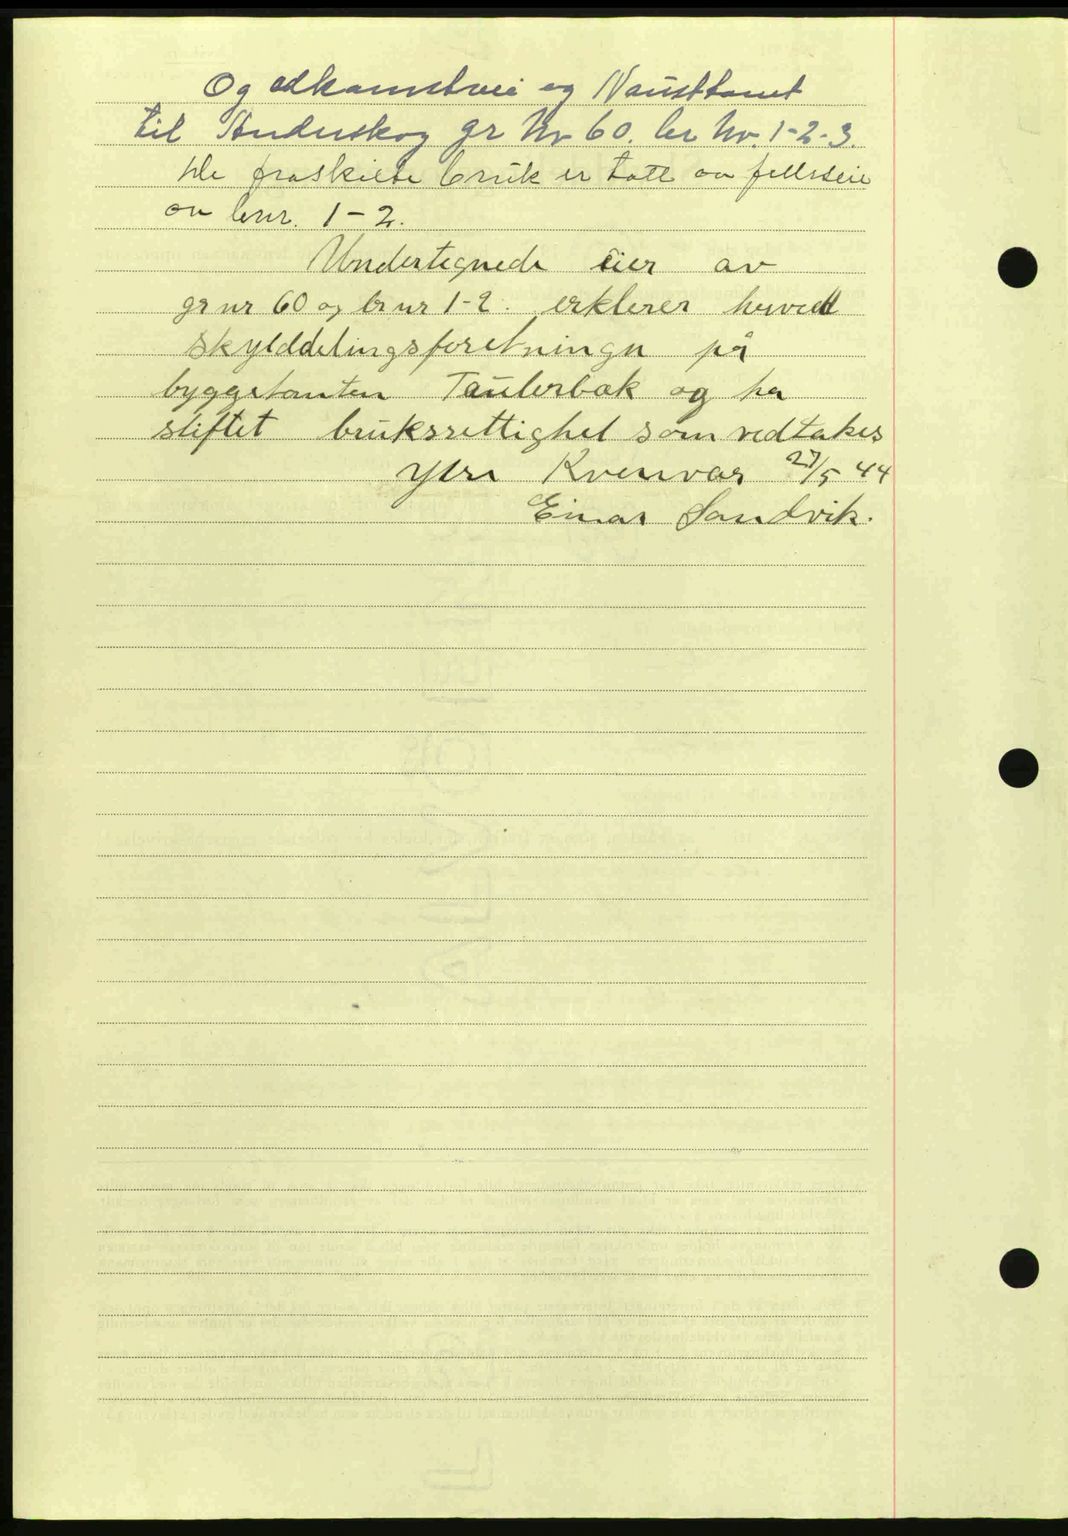 Og adkomstvei og Nausttomt
til Anderskog gr Nr 60. br Nr. 1-2-3.
De fraskilte bruk er tatt av felleseie
av brnr. 1-2.
Undertegnede eier av
gr nr 60 og br nr 1-2. erklerer herved
skylddelingsforetningn på
byggetomten Taulerbak og ha
stiftet bruksrettighet som vedtakes
Ytre Kvenvær 27/5 44
Einar Sandvik.